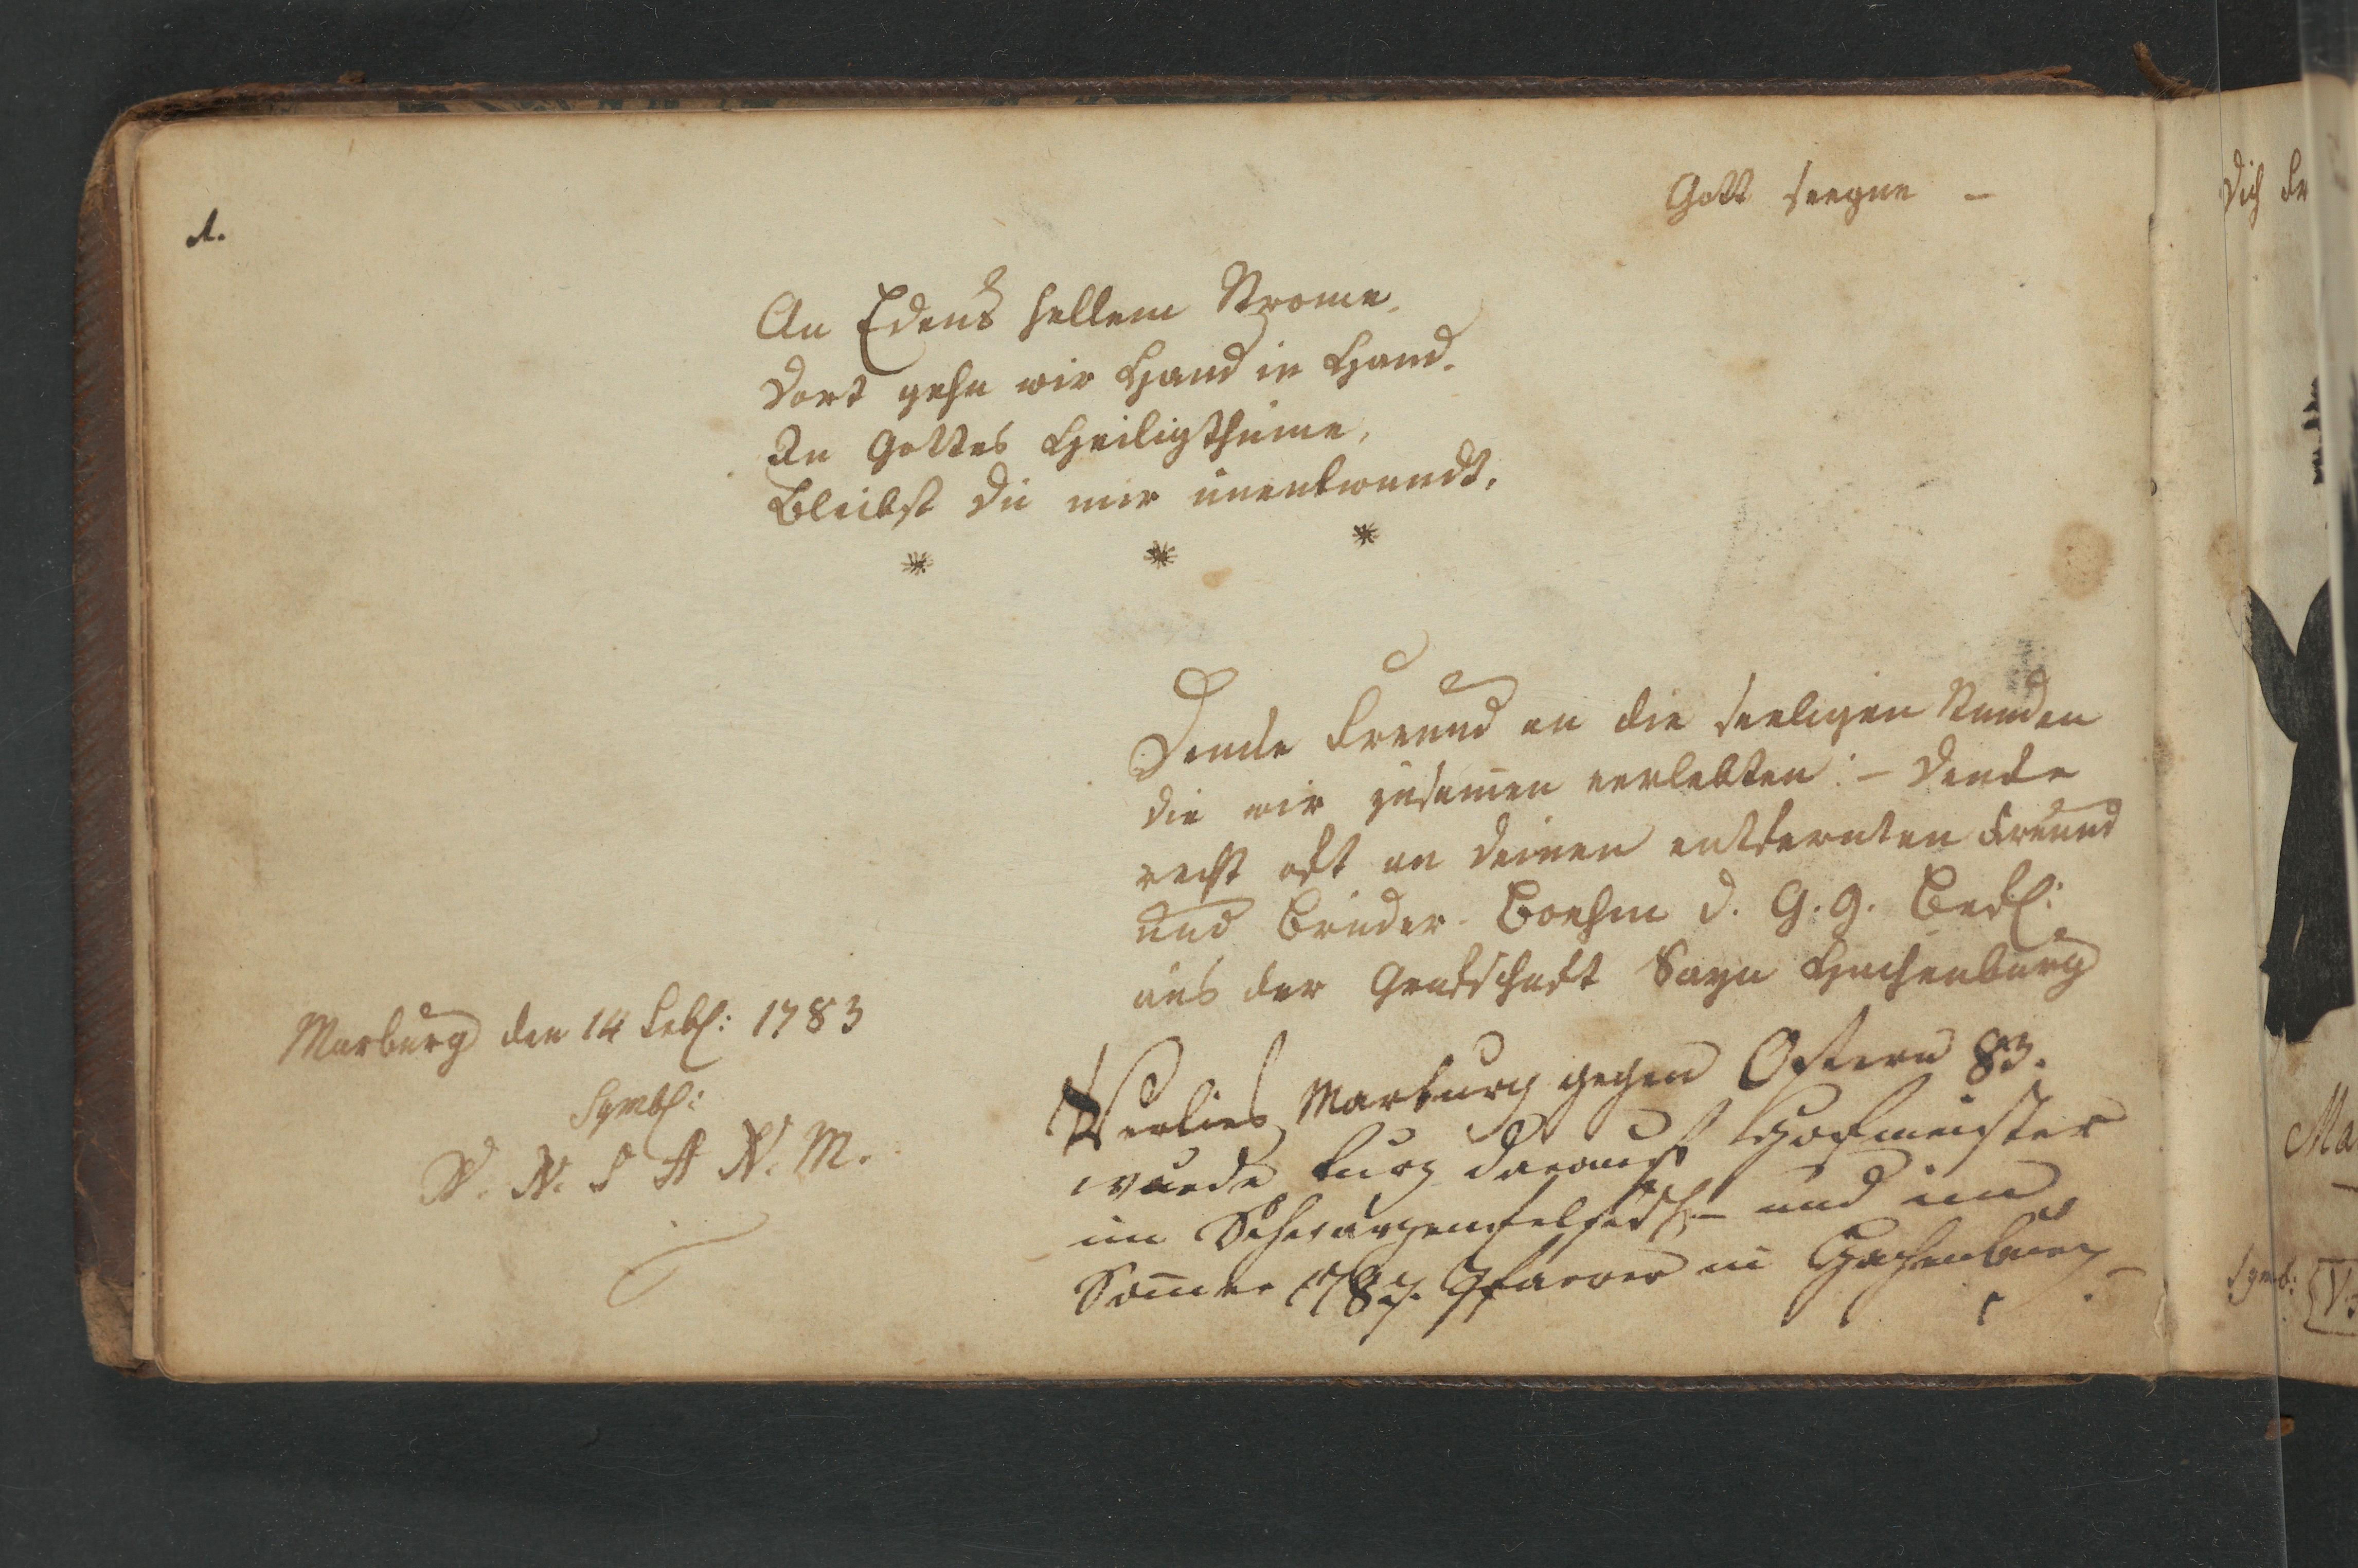 1.
Gott seegne –
An Edens hellem Strome,
Dort gehn wir Hand in Hand.
In Gottes Heiligthume,
Bleibst du mir unentwandt.
* * *
Dencke Freund an die seeligen Stunden
die wir zusam̄en verlebten: – Dencke
recht oft an deinen entfernten Freund
und Bruder. Boehm d. G. G. Befl:
aus der Grafschaft Sayn Hachenburg
Marburg den 14 Febr: 1783
Symb:
V. N. S A N. M.
Verlies Marburg gegen Ostern 83.
wurde kurz darauf Hofmeister
im und im
Som̄er 1787. Pfarrer in Hachenburg
Dich
Ma
Symb: V.